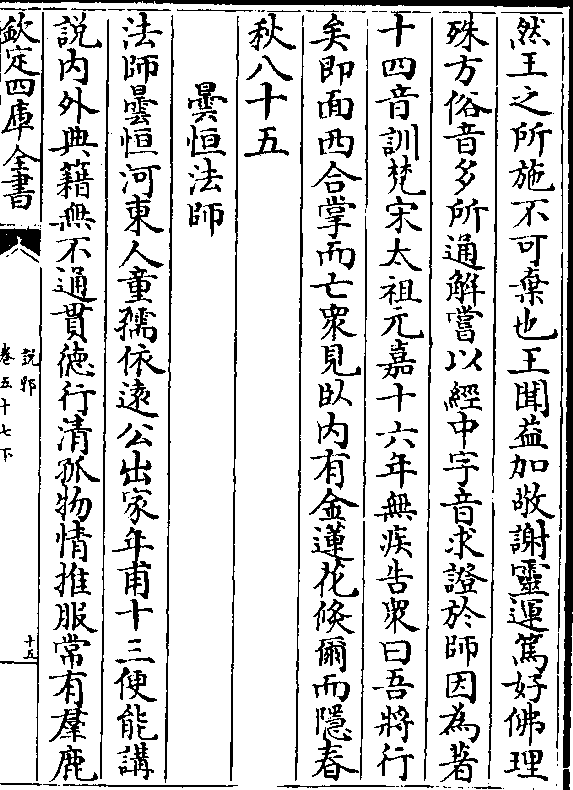 然王之所施不可棄也王聞益加敬謝靈運篤好佛理
殊方俗音多所通解嘗以經中字音求證於師因為著
十四音訓梵宋太祖元嘉十六年無疾告衆曰吾將行
矣即面西合掌而亡衆見臥内有金蓮花倐爾而隱春
秋八十五
曇恒法師
法師曇恒河東人童孺依逺公出家年甫十三便能講
説内外典籍無不通貫徳行清孤物情推服常有羣鹿
欽定四庫全書
説郛
卷五十七下
十五